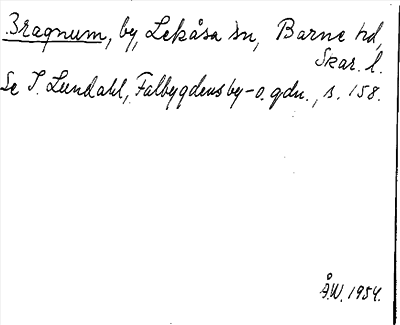 Bragnum, by, Lekåsa sn, Barne hd,
Skar. l.
Se I. Lundahl, Falbygdens by- o. gdn., s. 158.
Å.W. 1954.